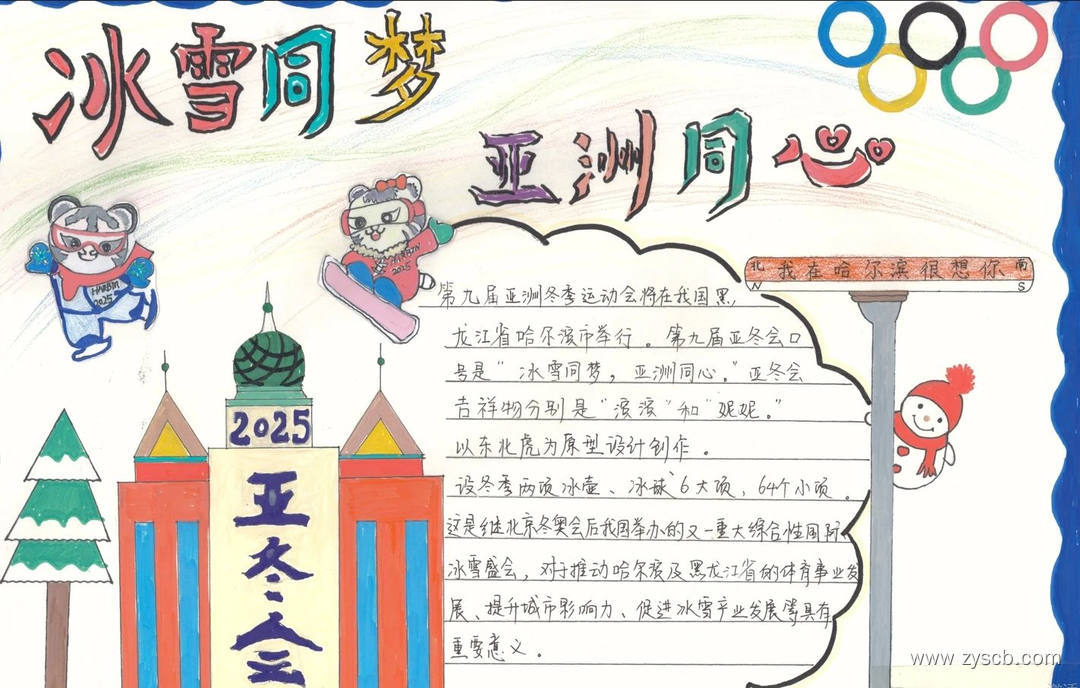 冰雪同梦
亚洲同心
HARBIN
2025
HARBIN
2025
北 我在哈尔滨很想你 南
N S
第九届亚洲冬季运动会将在我国黑
龙江省哈尔滨市举行。第九届亚冬会口
号是“冰雪同梦，亚洲同心。”亚冬会
吉祥物分别是“滨滨”和“妮妮。”
以东北虎为原型设计创作。
设冬季两项冰壶、冰球6大项，64个小项。
这是继北京冬奥会后我国举办的又一重大综合性国际
冰雪盛会，对于推动哈尔滨及黑龙江省的体育事业发
展、提升城市影响力、促进冰雪产业发展等具有
重要意义。
2025
亚冬会
www.zyscb.com